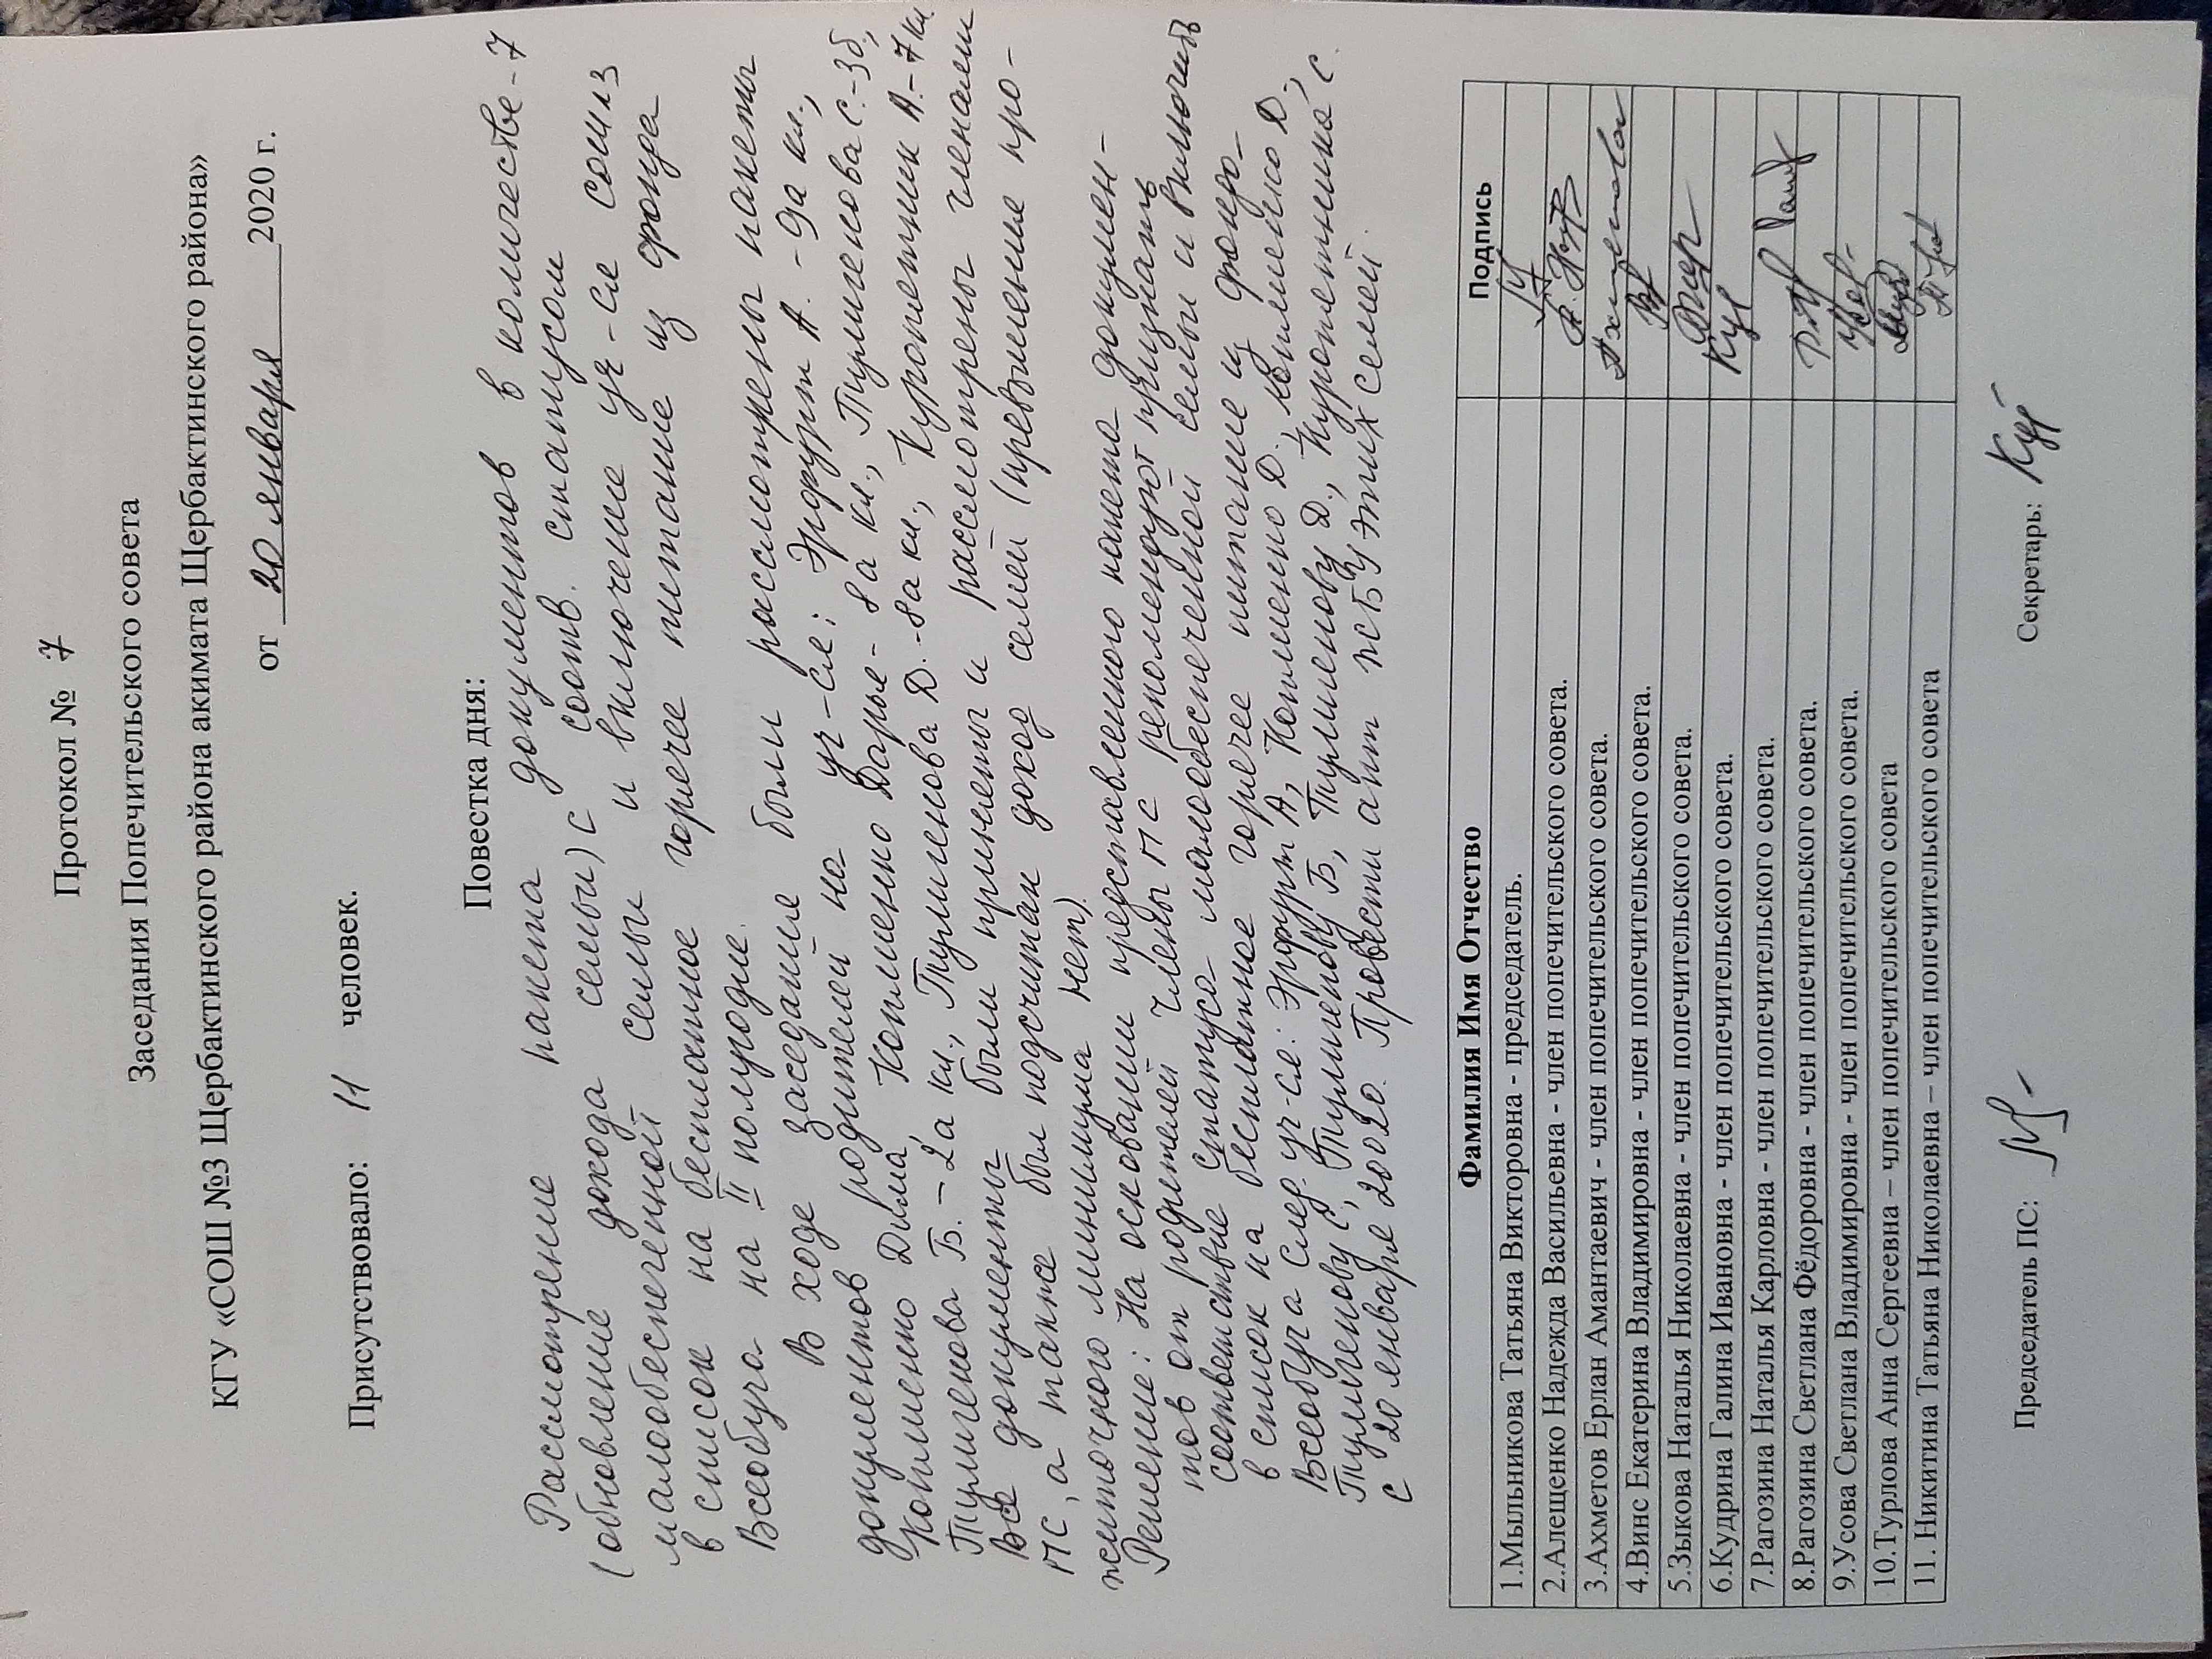 Протокол № 7
Заседания Попечительского совета
КГУ «СОШ №3 Щербактинского района акимата Щербактинского района»
от 20 января 2020 г.
Присутствовало: 11 человек.
Повестка дня:
Рассмотрение пакета документов в количестве-7
(обновление дохода семьи) с соотв. статусом
малообеспеченной семьи и включение уч-ся СОШ №3
в список на бесплатное горячее питание из фонда
Всеобуча на II полугодие.
В ходе заседание были рассмотрены пакеты
документов родителей на уч-ся: Эрфурт А. - 9а кл.,
Копиенко Дима, Копиенко Дарье - 8а кл., Тулигенова С.-3б,
Тулигенова Б. - 2а кл., Тулигенова Д. - 8а кл., Куропетник А.-7кл.
Все документы были приняты и рассмотрены членами
ПС, а также был подсчитан доход семей (превышение про-
житочного минимума нет).
Решение: На основании представленного пакета докумен-
тов от родителей члены ПС рекомендуют признать
соответствие статуса малообеспеченной семьи и включить
в список на бесплатное горячее питание из фонда
Всеобуча след. уч-ся: Эрфурт А, Копиенко Д., Копиенко Д.,
Тулигенову С, Тулигенову Б, Тулигенову Д., Куропетника С.
с 20 января 2020г. Провести акт ЖБУ этих семей.
Фамилия Имя Отчество Подпись
1.Мыльникова Татьяна Викторовна - председатель.
2.Алещенко Надежда Васильевна - член попечительского совета.
3.Ахметов Ерлан Амантаевич - член попечительского совета.
4.Винс Екатерина Владимировна - член попечительского совета.
5.Зыкова Наталья Николаевна - член попечительского совета.
6.Кудрина Галина Ивановна - член попечительского совета.
7.Рагозина Наталья Карловна - член попечительского совета.
8.Рагозина Светлана Фёдоровна - член попечительского совета.
9.Усова Светлана Владимировна - член попечительского совета.
10.Турлова Анна Сергеевна – член попечительского совета
11. Никитина Татьяна Николаевна – член попечительского совета
Председатель ПС: Секретарь: